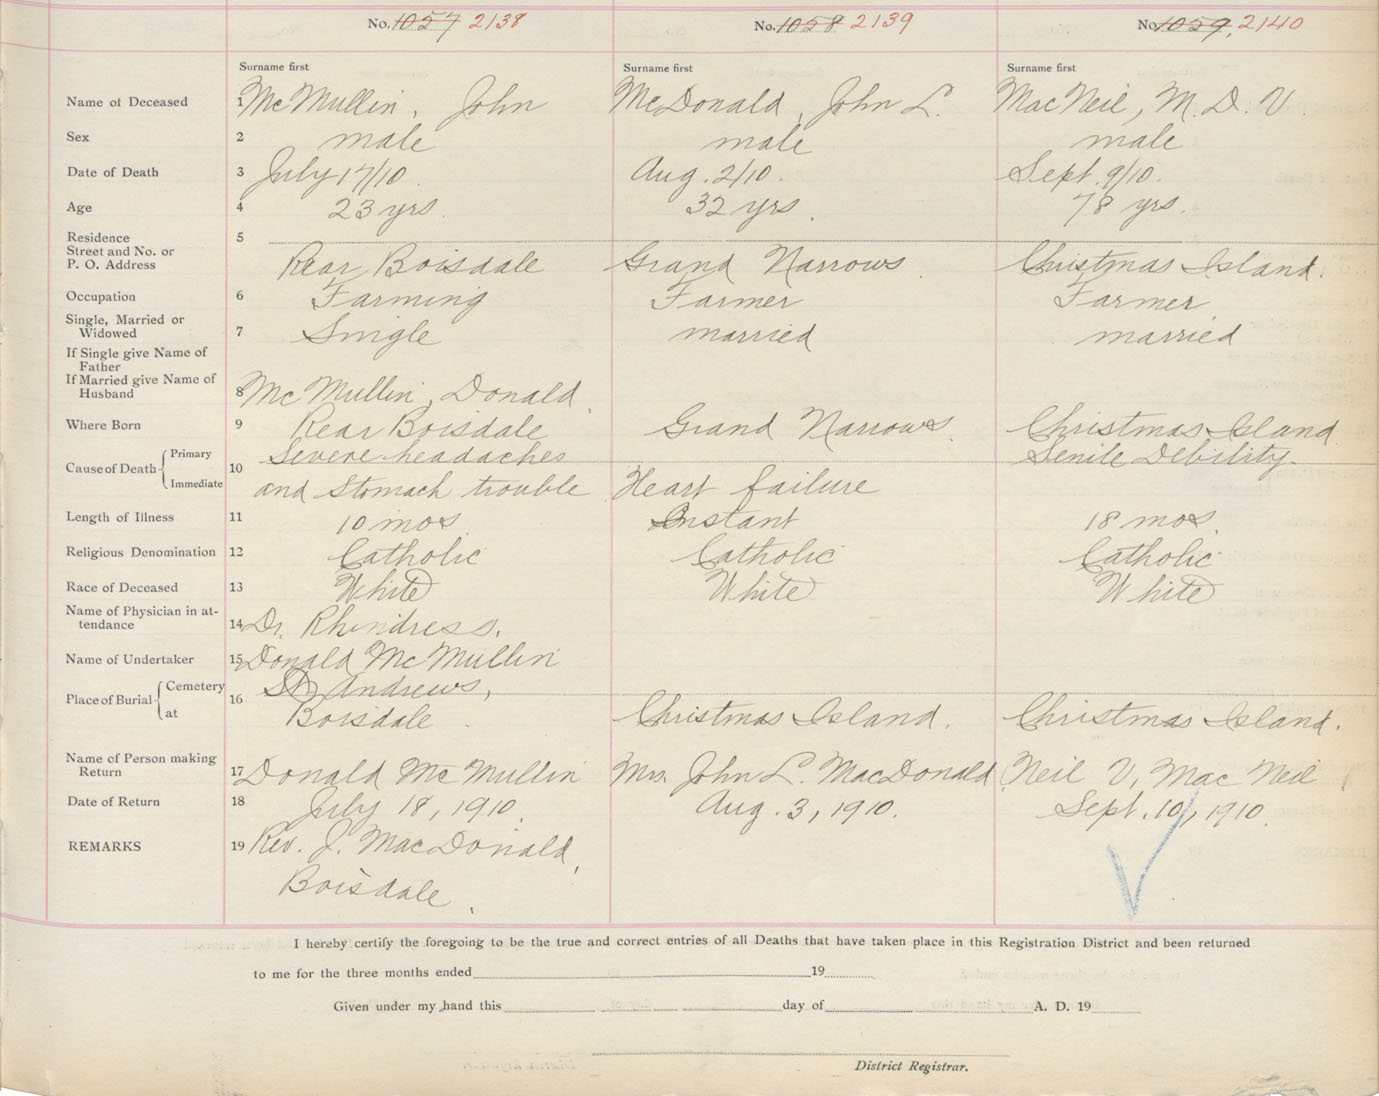 No. 1057 2138 No. 1058 2139 No. 1059, 2140
Surname first Surname first Surname first
Name of Deceased 1 McMullin, John McDonald, John L. MacNeil, M. D. V.
Sex 2 male male male
Date of Death 3 July 17/10. Aug. 2/10. Sept. 9/10.
Age 4 23 yrs. 32 yrs. 78 yrs.
Residence 5
Street and No. or
P. O. Address Rear Boisdale Grand Narrows. Christmas Island.
Occupation 6 Farming Farmer Farmer
Single, Married or
Widowed 7 Single married married
If Single give Name of
Father
If Married give Name of
Husband 8 McMullin, Donald.
Where Born 9 Rear Boisdale Grand Narrows. Christmas Island
Cause of Death Primary 10 Severe headaches Senile Debility.
Immediate and Stomach trouble Heart failure
Length of Illness 11 10 mos Instant 18 mos.
Religious Denomination 12 Catholic Catholic Catholic
Race of Deceased 13 White White White
Name of Physician in at-
tendance 14 Dr. Rhindress.
Name of Undertaker 15 Donald McMullin
Place of Burial Cemetery 16 St. Andrews,
at Boisdale. Christmas Island. Christmas Island.
Name of Person making
Return 17 Donald McMullin Mrs. John L. MacDonald Neil V. MacNeil
Date of Return 18 July 18, 1910. Aug. 3, 1910. Sept. 10, 1910.
REMARKS 19 Rev. J. MacDonald,
Boisdale.
I hereby certify the foregoing to be the true and correct entries of all Deaths that have taken place in this Registration District and been returned
to me for the three months ended 19
Given under my hand this day of A. D. 19
District Registrar.